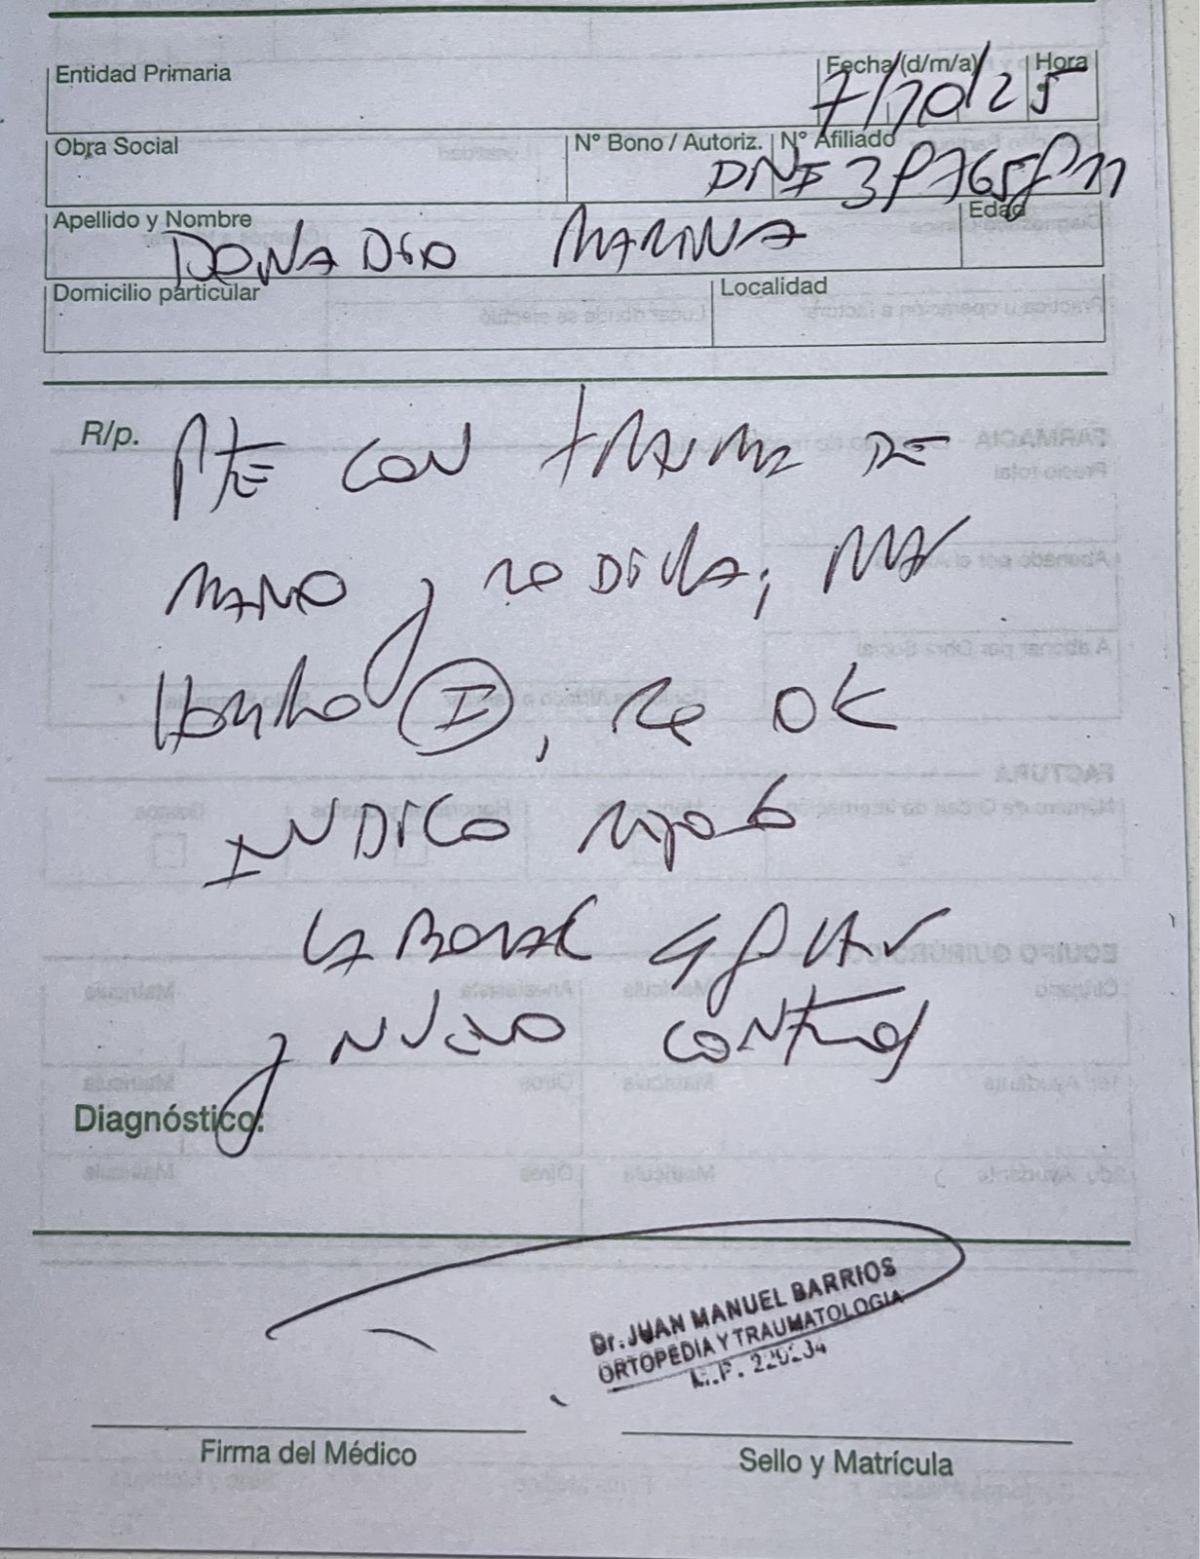 Entidad Primaria Fecha (d/m/a) Hora
7/10/25
Obra Social N° Bono / Autoriz. N° Afiliado
DNI
Apellido y Nombre Edad
DONADIO MARINA
Domicilio particular Localidad
R/p. PTE CON TRAUMA DE
MANO y RODILLA;
Hombro (I), RX OK
INDICO reposo
LABORAL 48
y NUEVO CONTROL
Diagnóstico:
Dr. JUAN MANUEL BARRIOS
ORTOPEDIA Y TRAUMATOLOGIA
M.P.
Firma del Médico
Sello y Matrícula